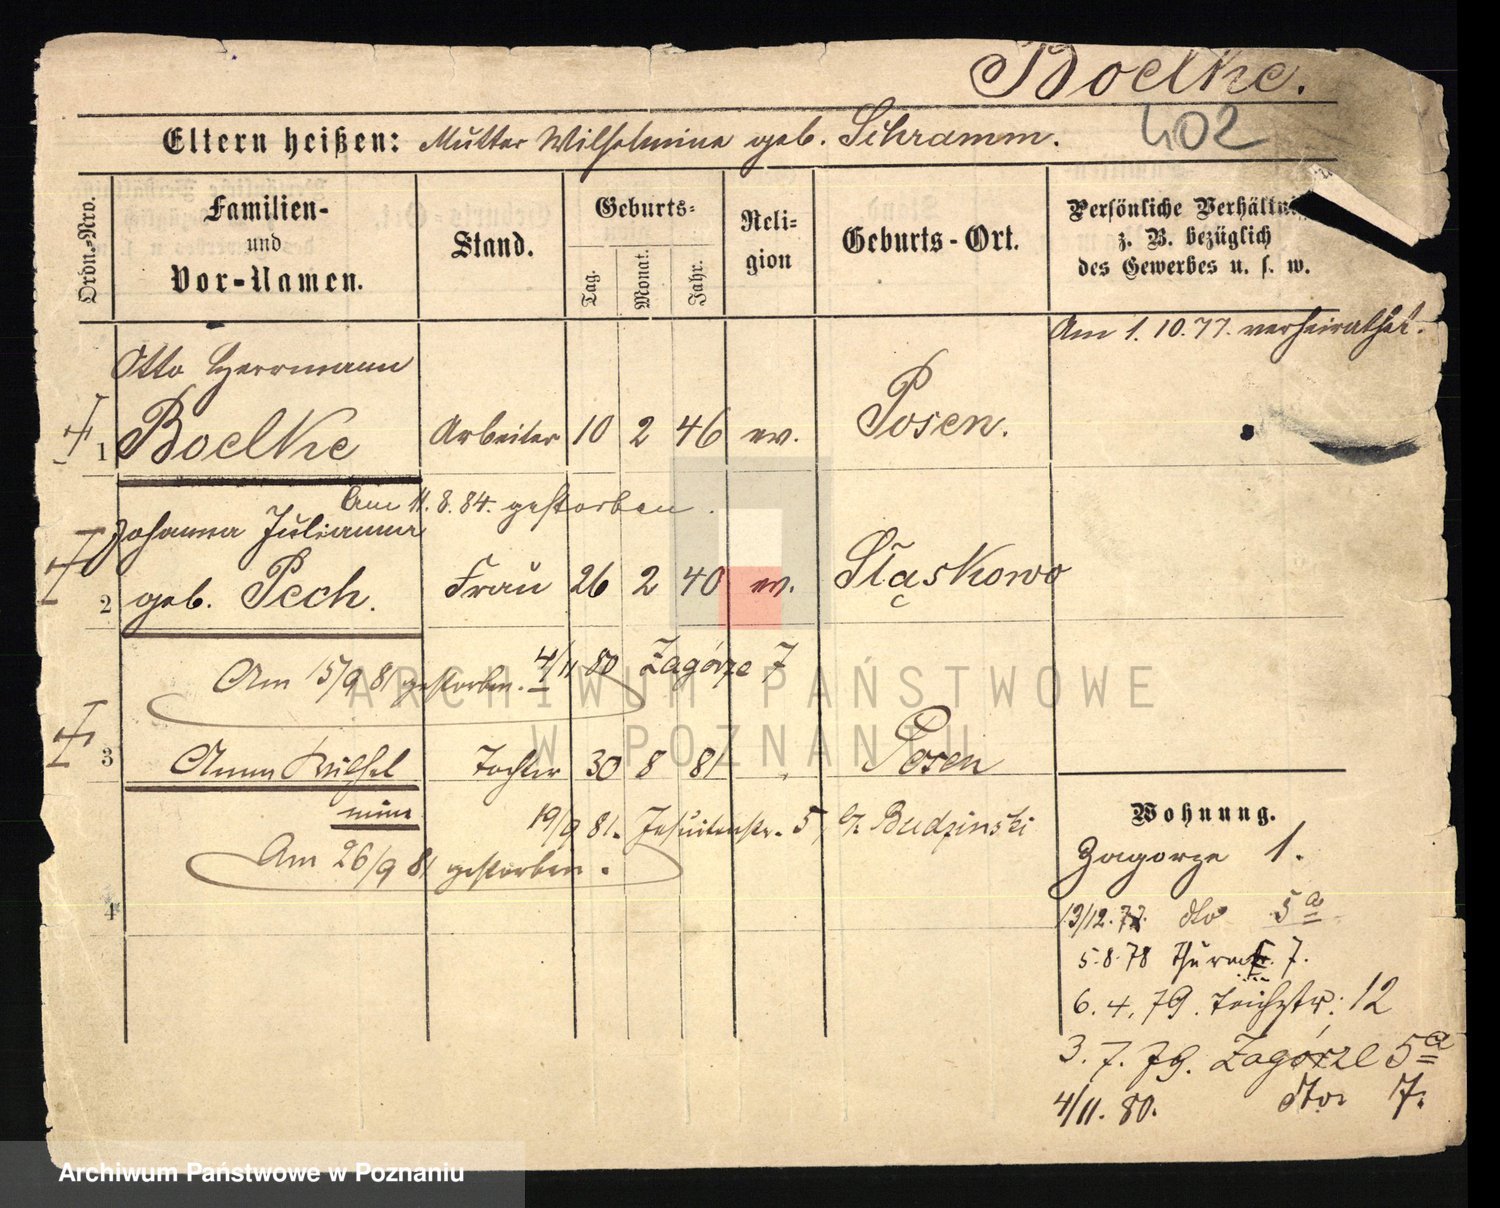 Boelke.
402
Eltern heißen: Mutter Wilhelmine geb. Schramm.
Ordn.-Nro.
Familien-
und
Vor-Namen.
Stand.
Geburts-
Tag.
Monat.
Jahr.
Reli-
gion
Geburts-Ort.
Persönliche Verhältni
z. B. bezüglich
des Gewerbes u. s. w.
Am 1.10.77. verheirathet.
Otto Herrmann
1 Boelke Arbeiter 10 2 46 ev. Posen.
Am 11.8.84. gestorben.
Johanna Julianna
2 geb. Pech. Frau 26 2 40 ev. Słąskowo
4/11 80 Zagórze 7
Am 15/9 81 gestorben.
3 Anna Tochter 30 8 81 Posen
19/9 81. Jesuitenstr. 5, b/ Budzinski
Am 26/9 81 gestorben.
4
Wohnung.
Zagorze 1.
13/12.77. dto 5a
5.8.78 Thurmstr. 7.
6.4.79. Teichstr. 12
3.7.79. Zagórze 5a
4/11.80. dto. 7.
ARCHIWUM PAŃSTWOWE
W POZNANIU
Archiwum Państwowe w Poznaniu